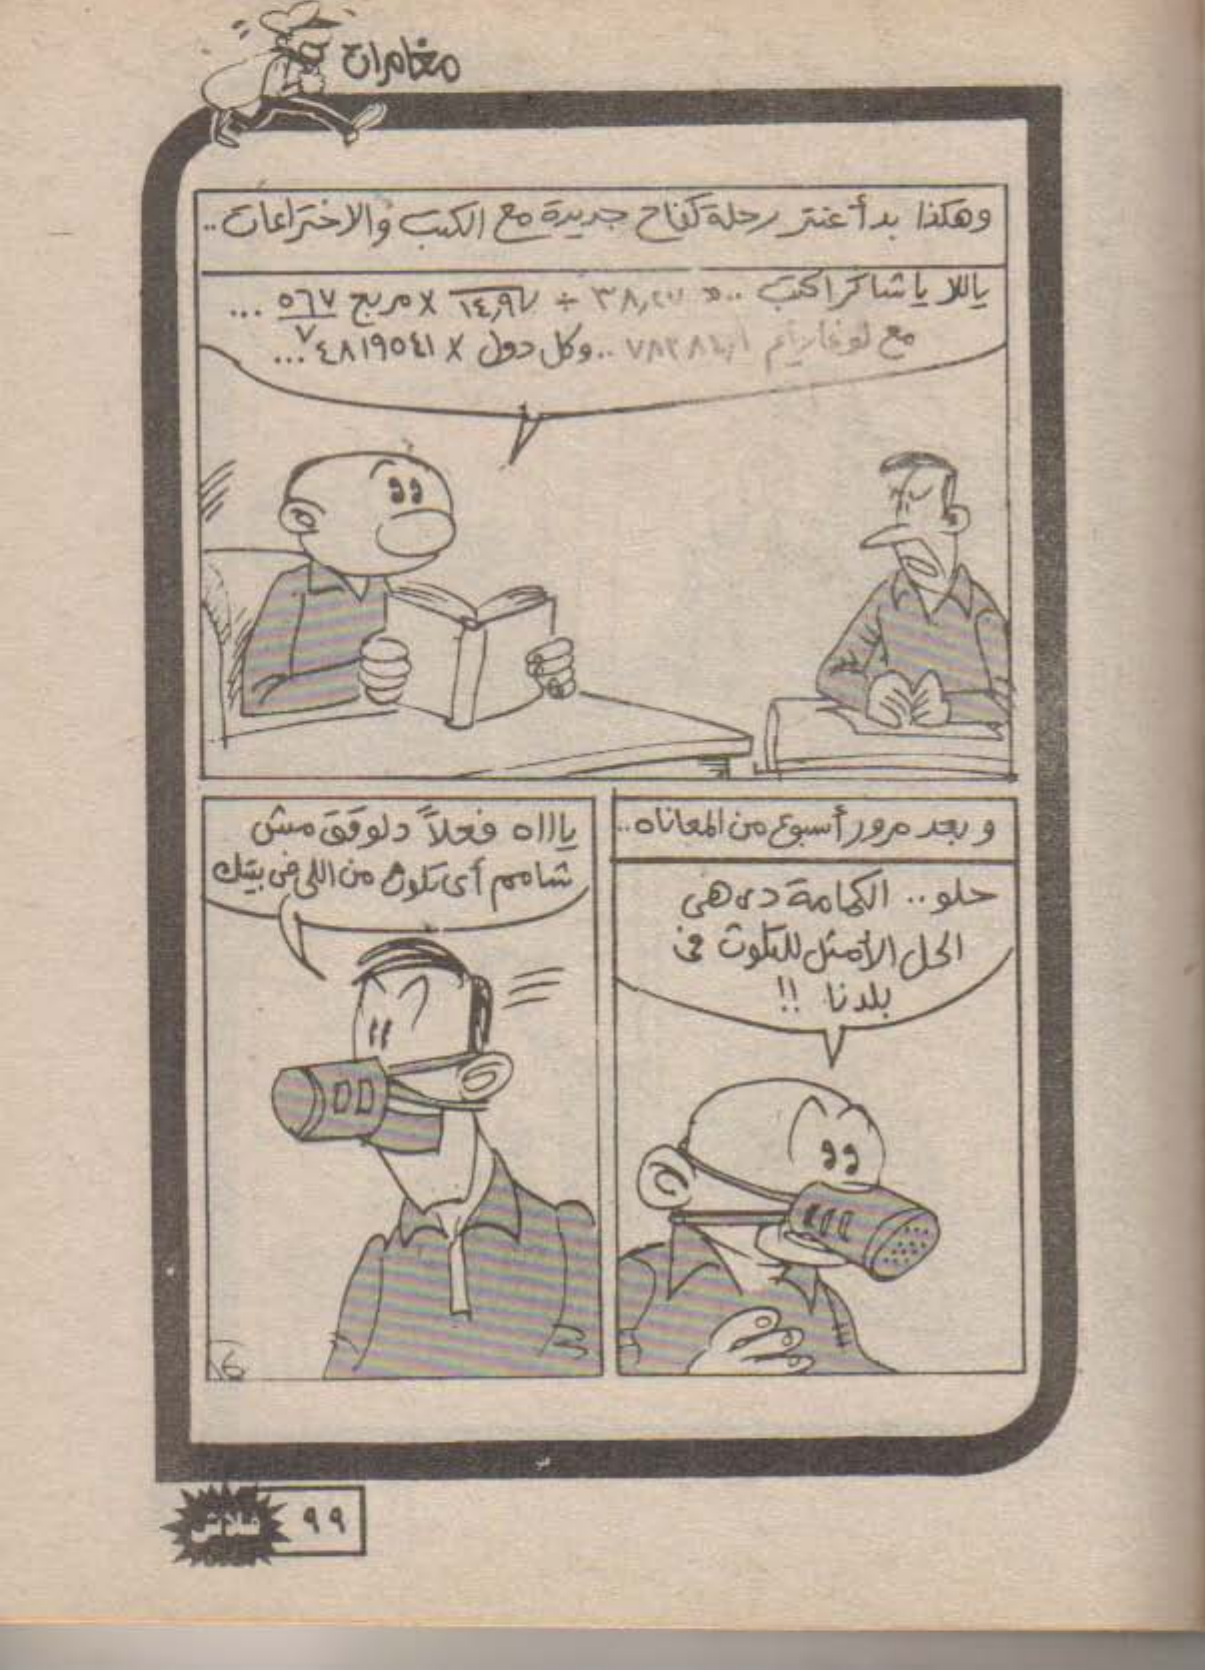 مغامرات
وهكذا بدأ عنتر رحلة كفاح جديدة مع الكتب والاختراعات..
ياللا يا شاكر اكتب .. ÷ ١٤,٩٧ × مربع ٥٦٧ ...
مع لوغاريتم .. وكل دول × ٤٨١٩٥٤١ ...
٧
وبعد مرور أسبوع من المعاناه..
حلو.. الكمامة دى هى
الحل الأمثل للتلوث فى
بلدنا !!
ياااه فعلاً دلوقتى مش
شامم أى تلوث من اللى فى بيتك
6
فلاش ٩٩